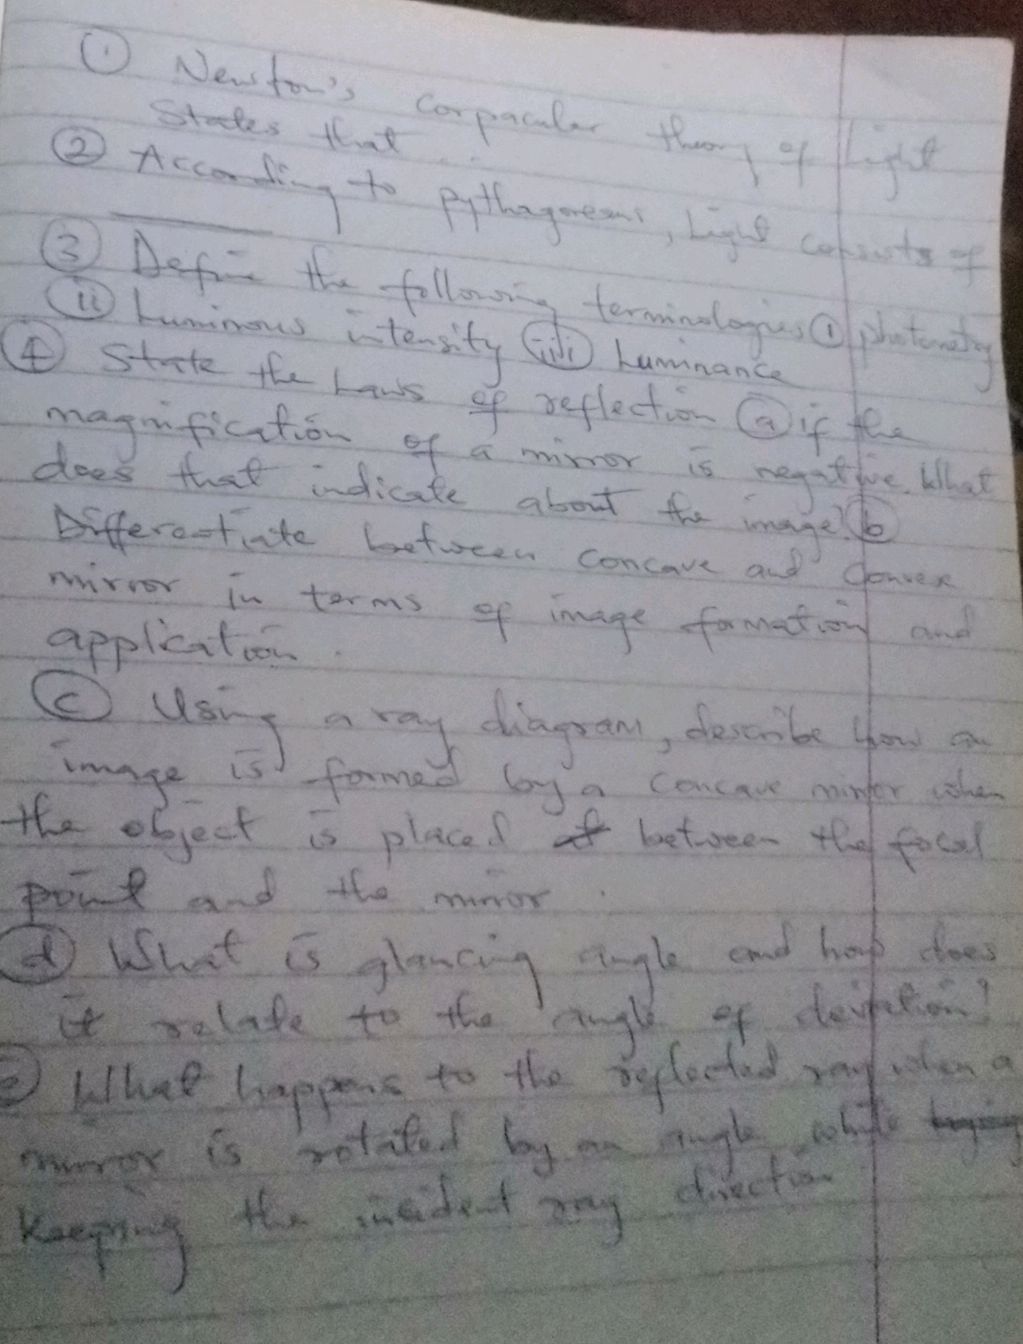 ① Newton's corpacular theory of light
States that ...
② According to pythagoreans, Light consists of
③ Define the following terminologies ① photometry
(ii) Luminous intensity (iii) Luminance
④ State the Laws of reflection (a) if the
magnification of a mirror is negative. What
does that indicate about the image? (b)
Differentiate between concave and convex
mirror in terms of image formation and
application.
(c) Using a ray diagram, describe how an
image is formed by a concave mirror when
the object is placed between the focal
point and the mirror.
(d) What is glancing angle and how does
it relate to the angle of deviation?
(e) What happens to the reflected ray when a
mirror is rotated by an angle while
keeping the incident ray direction